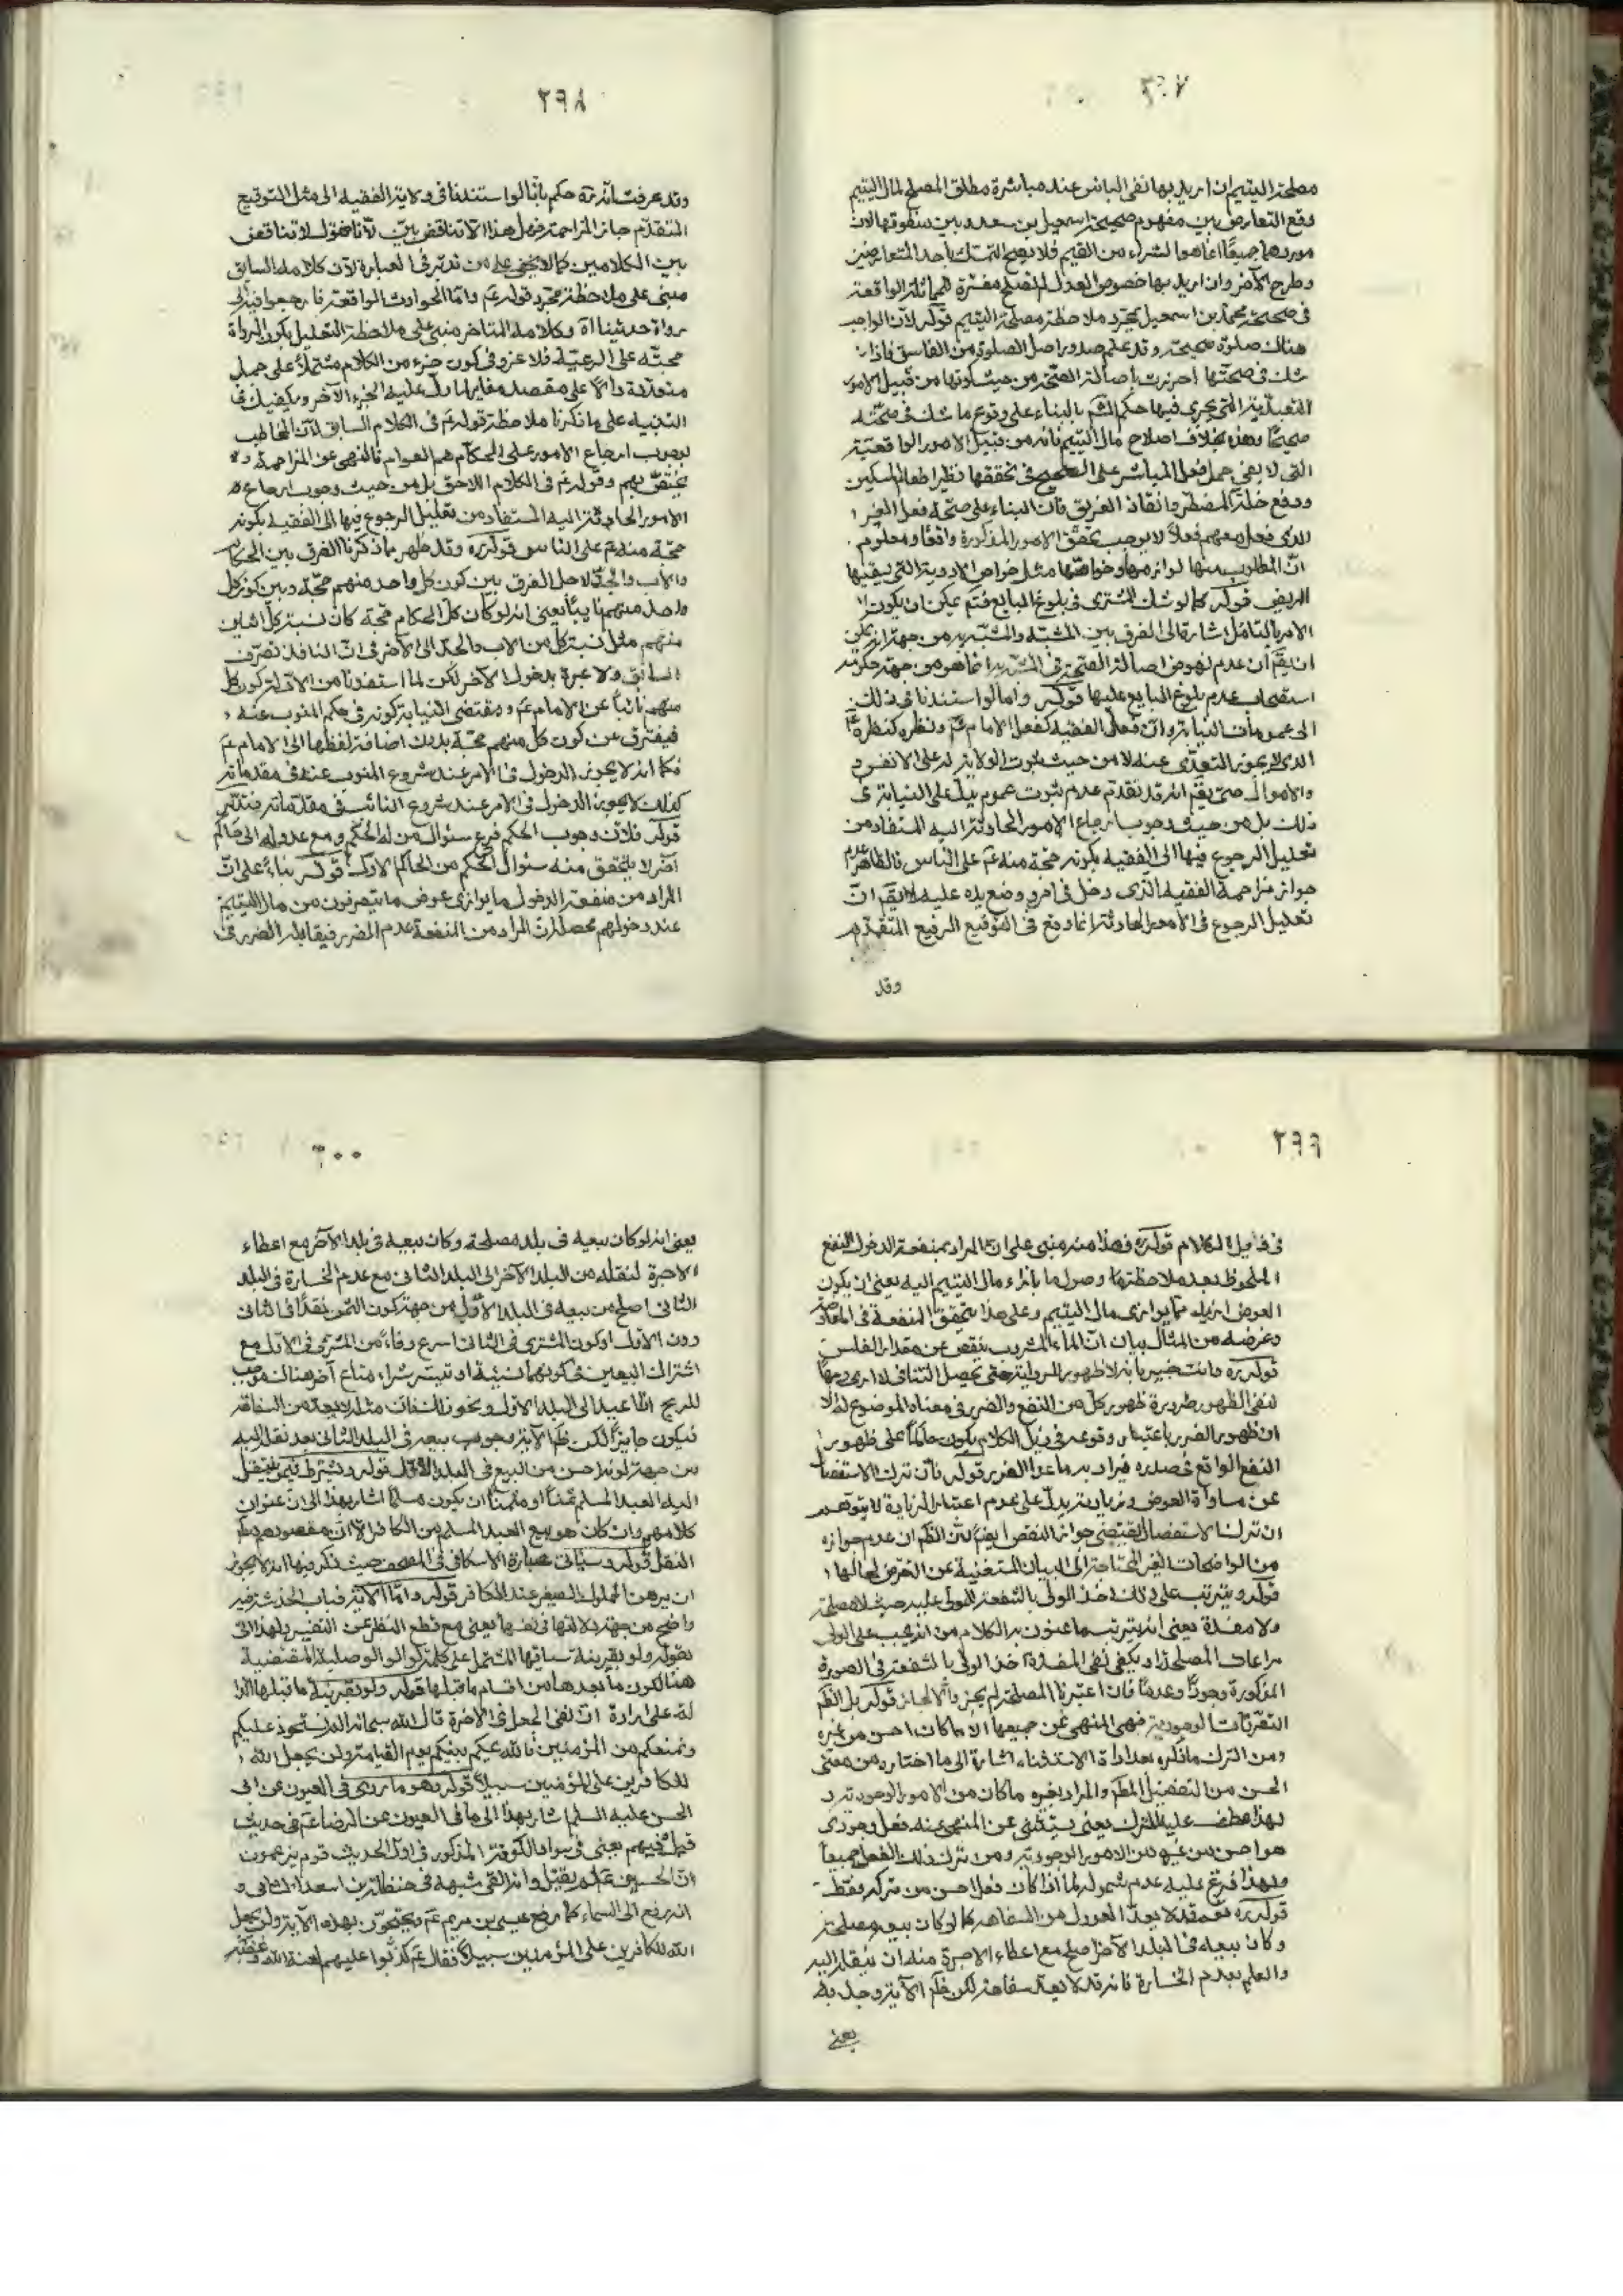 مصلحة اليتيم ان اريد بها نفى الباس عند مباشرة مطلق المصلح لمال اليتيم
وقع التعارض بين مفهوم صحيحة اسمعيل بن سعد وبين منطوقها لان
موردهما جميعًا انما هو الشراء من القيم فلا يصح التمسك باحد المتعارضين
وطرح الآخر وان اريد بها خصوص العدول لم تصلح مفسّرة للمماثلة الواقعة
فى صحيحة محمد بن اسمعيل بمجرد ملاحظة مصلحة اليتيم قوله لان الواجب
هناك صلوة صحيحة وقد علم صدور اصل الصلوة من الفاسق فاذا
شك فى صحتها احرزت باصالة الصحّة من حيث كونها من قبيل الامور
التعبدية التى يجرى فيها حكم الشم بالبناء على وقوع ما شك فى صحّته
صحيحًا وهذه بخلاف اصلاح مال اليتيم فانه من قبيل الامور الواقعيّة
التى لا يغنى حمل فعل المباشر على الصحيح فى تحققها نظير اطعام المسكين
ودفع خلة المضطر وانقاذ الغريق فان البناء على صحّة فعل الغير
الذى فعل معهم فعلًا لا يوجب تحقّق الامور المذكورة واقعًا ومعلوم
انّ المطلوب منها لوازمها وخواصّها مثل خواص الادوية التى يسقيها
المريض قوله كما لو شك المشترى فى بلوغ البايع فتم يمكن ان يكون
الامر بالتامل اشارة الى الفرق بين المشبّه والمشبّه به من جهة انه يمكن
ان يقم ان عدم نهوض اصالة الصحّة فى المشبّه به انما هو من جهة حكومة
استصحاب عدم بلوغ البايع عليها قوله واما لو استندنا فى ذلك
الى عمومات النيابة وان فعل الفقيه كفعل الامام عم ونظره كنظره
الذى لا يجوز التعدّى عنه لا من حيث ثبوت الولاية له على الانفس
والاموال حتى يقم انه قد تقدم عدم ثبوت عموم يدل على النيابة فى
ذلك بل من حيث وجوب ارجاع الامور الحادثة اليه المستفاد من
تعليل الرجوع فيها الى الفقيه بكونه حجّة منه عم على الناس فالظاهر عدم
جواز مزاحمة الفقيه الذى دخل فى امر ووضع يده عليه لا يقم انّ
تعليل الرجوع فى الامور الحادثة انما وقع فى التوقيع الرفيع المتقدم
وقد
٢٩٨
وقد عرفت انه ره حكم بانا لو استندنا فى ولاية الفقيه الى مثل التوقيع
المتقدّم جاز المزاحمة فهل هذا الا تناقض بيّن لانا نقول لا تناقض
بين الكلامين كما لا يخفى على من تدبّر فى العبارة لان كلامه السابق
مبنى على ملاحظة مجرّد قوله عم واما الحوادث الواقعة فارجعوا فيها الى
رواة حديثنا آه وكلامه المتاخر مبنى على ملاحظة التعليل بكون الرواة
حجّة على الرعيّة فلا غرو فى كون جزء من الكلام مشتملًا على جمل
متعدّدة دالًا على مقصد مغاير لما دلّ عليه الجزء الآخر ويكفيك فى
التنبيه على ما ذكرنا ملاحظة قوله عم فى الكلام السابق لان المخاطب
بوجوب ارجاع الامور على الحكّام هم العوام فالنهى عن المزاحمة
يختصّ بهم وقوله عم فى الكلام اللاحق بل من حيث وجوب ارجاع
الامور الحادثة اليه المستفاد من تعليل الرجوع فيها الى الفقيه بكونه
حجّة منه عم على الناس قوله ره وقد ظهر مما ذكرنا الفرق بين الحكام
والاب والجدّ لاجل الفرق بين كون كل واحد منهم حجّة وبين كون كل
واحد منهم نايبًا يعنى انه لو كان كلّ الحكام حجة كان نسبة كلّ اثنين
منهم مثل نسبة كل من الاب والجدّ الى الآخر فى انّ النافذ تصرّف
السابق ولا عبرة بدخول الآخر لكن لما استفدنا من الادلة كون كل
منهم نائبًا عن الامام عم ومقتضى النيابة كونه فى حكم المنوب عنه
فيفترق عن كون كل منهم حجّة بدون اضافة لفظها الى الامام عم
فكما انه لا يجوز الدخول فى الامر عند شروع المنوب عنه فى مقدماته
كذلك لا يجوز الدخول فى الامر عند شروع النائب فى مقدّماته فتدبّر
قوله فلان وجوب الحكم فرع سئوال من له الحكم ومع عدوله الى حاكم
آخر لا يتحقق منه سئوال الحكم من الحاكم الاول قوله بناء على انّ
المراد من منفعة الدخول ما يوازى عوض ما يتصرفون من مال اليتيم
عند دخولهم محصّله ان المراد من المنفعة عدم الضرر فيقابله الضرر فى
٢٩٩
فى ذيل الكلام قوله ره وهذا منه مبنى على ان المراد بمنفعة الدخول النفع
الملحوظ بعد ملاحظتها وصول ما بازاء مال اليتيم اليه يعنى ان يكون
العوض ازيد مما يوازى مال اليتيم وعلى هذا يتحقق المنفعة فى
وغرضه من المثال بيان انّ الماء المشروب ينقص عن مقدار الفلس
قوله ره وانت خبير بانه لا ظهور للرواية حتى يحصل التنافى
لنفى الظهور ضرورة ظهور كل من النفع والضرر فى معناه الموضوع له الا
ان ظهور الضرر باعتبار وقوعه فى ذيل الكلام يكون حاكمًا على ظهور
النفع الواقع فى صدره فيراد به ما عدا الضرر قوله فان ترك الاستفصال
عن مساواة العوض وزيادته يدلّ على عدم اعتبار الزيادة لا يتوهم
ان ترك الاستفصال يقتضى جواز النقص ايضًا لان الظم ان عدم جوازه
من الواضحات الغير المحتاجة الى البيان المستغنية عن التعرّض لحالها
قوله ويترتب على ذلك اخذ الولى بالشفعة للمولى عليه حيث لا مصلحة
ولا مفسدة يعنى انه يترتب ما عنون به الكلام من انه يجب على الولى
مراعات المصلحة او يكفى نفى المفسدة اخذ الولى بالشفعة فى الصورة
المذكورة وجودًا وعدمًا فان اعتبرنا المصلحة لم يجز والا جاز قوله بل الظم
التقريبات الوجودية فهى المنهى عن جميعها الا ما كان احسن من غيره
ومن الترك ما ذكره بعد اداة الاستثناء اشارة الى ما اختاره من معنى
الحسن من التفضيل المطم والمراد بغيره ما كان من الامور الوجودية
بهذا عطف عليه الترك يعنى يستثنى عن المنهى عنه فعل وجودى
هو احسن من غيره من الامور الوجودية ومن ترك ذلك الفعل جميعًا
ولهذا فرّع عليه عدم شموله لما اذا كان فعل احسن من تركه فقط
قوله ره نعم قد لا يعدّ العدول من السفاهة كما لو كان بيعه مصلحة
وكان بيعه فى البلد الآخر اصلح مع اعطاء الاجرة منه ان ينقله اليه
والعلم بعدم الخسارة فانه قد لا يعدّ سفاهة لكن ظم الآية وجوبه
يعنى
٣٠٠
يعنى انه لو كان بيعه فى بلد مصلحة وكان بيعه فى بلد الآخر مع اعطاء
الاجرة لنقله من البلد الآخر الى البلد الثانى مع عدم الخسارة فى البلد
الثانى اصلح من بيعه فى البلد الاول من جهة كون الثمن نقدًا فى الثانى
دون الاول او كون المشترى فى الثانى اسرع وفاء من المشترى فى الاول مع
اشتراك البيعين فى كونهما نسيئة او تيسّر شراء متاع آخر هناك موجب
للربح اذا اعيد الى البلد الاول ونحو ذلك فان مثله لا يعد من السفاهة
فيكون جايزًا لكن ظم الآية وجوب بيعه فى البلد الثانى بعد نقله اليه
من جهة كونه احسن من البيع فى البلد الاول قوله ويشترط فيمن ينتقل
اليه العبد المسلم ثمنًا او مثمنًا ان يكون مسلمًا اشار بهذا الى ان عنوان
كلامهم وان كان هو بيع العبد المسلم من الكافر الا ان مقصودهم
النقل قوله وسياتى عبارة الاسكافى فى المصحف حيث ذكر فيها انه لا يجوز
ان يرهن المملوك الصغير عند الكافر قوله واما الآية فباب الخدشة فيه
واضح من جهة دلالتها فى نفسها يعنى مع قطع النظر عن التفسير
بقوله ولو بقرينة سياقها المشتمل على كلمة لو الوصلية المقتضية
هنا لكون ما بعدها من اقسام ما قبلها قوله ولو بقرينة ما قبلها الدا
لة على ارادة انّ نفى الجعل فى الآخرة قال الله سبحانه الم نستحوذ عليكم
ونمنعكم من المؤمنين فالله يحكم بينكم يوم القيامة ولن يجعل الله
للكافرين على المؤمنين سبيلًا قوله وهو ما روى فى العيون عن ابى
الحسن عليه السلم اشار بهذا الى ما فى العيون عن الرضا عم فى حديث
قيل فيهم يعنى فى سواد الكوفة المذكور فى اول الحديث قوم يزعمون
ان الحسين عم لم يقتل وانه القى شبهه على حنظلة بن اسعد الشامى و
انه رفع الى السماء كما رفع عيسى بن مريم عم ويحتجّون بهذه الآية ولن يجعل
الله للكافرين على المؤمنين سبيلًا فقال عم كذبوا عليهم لعنة الله وغضبه